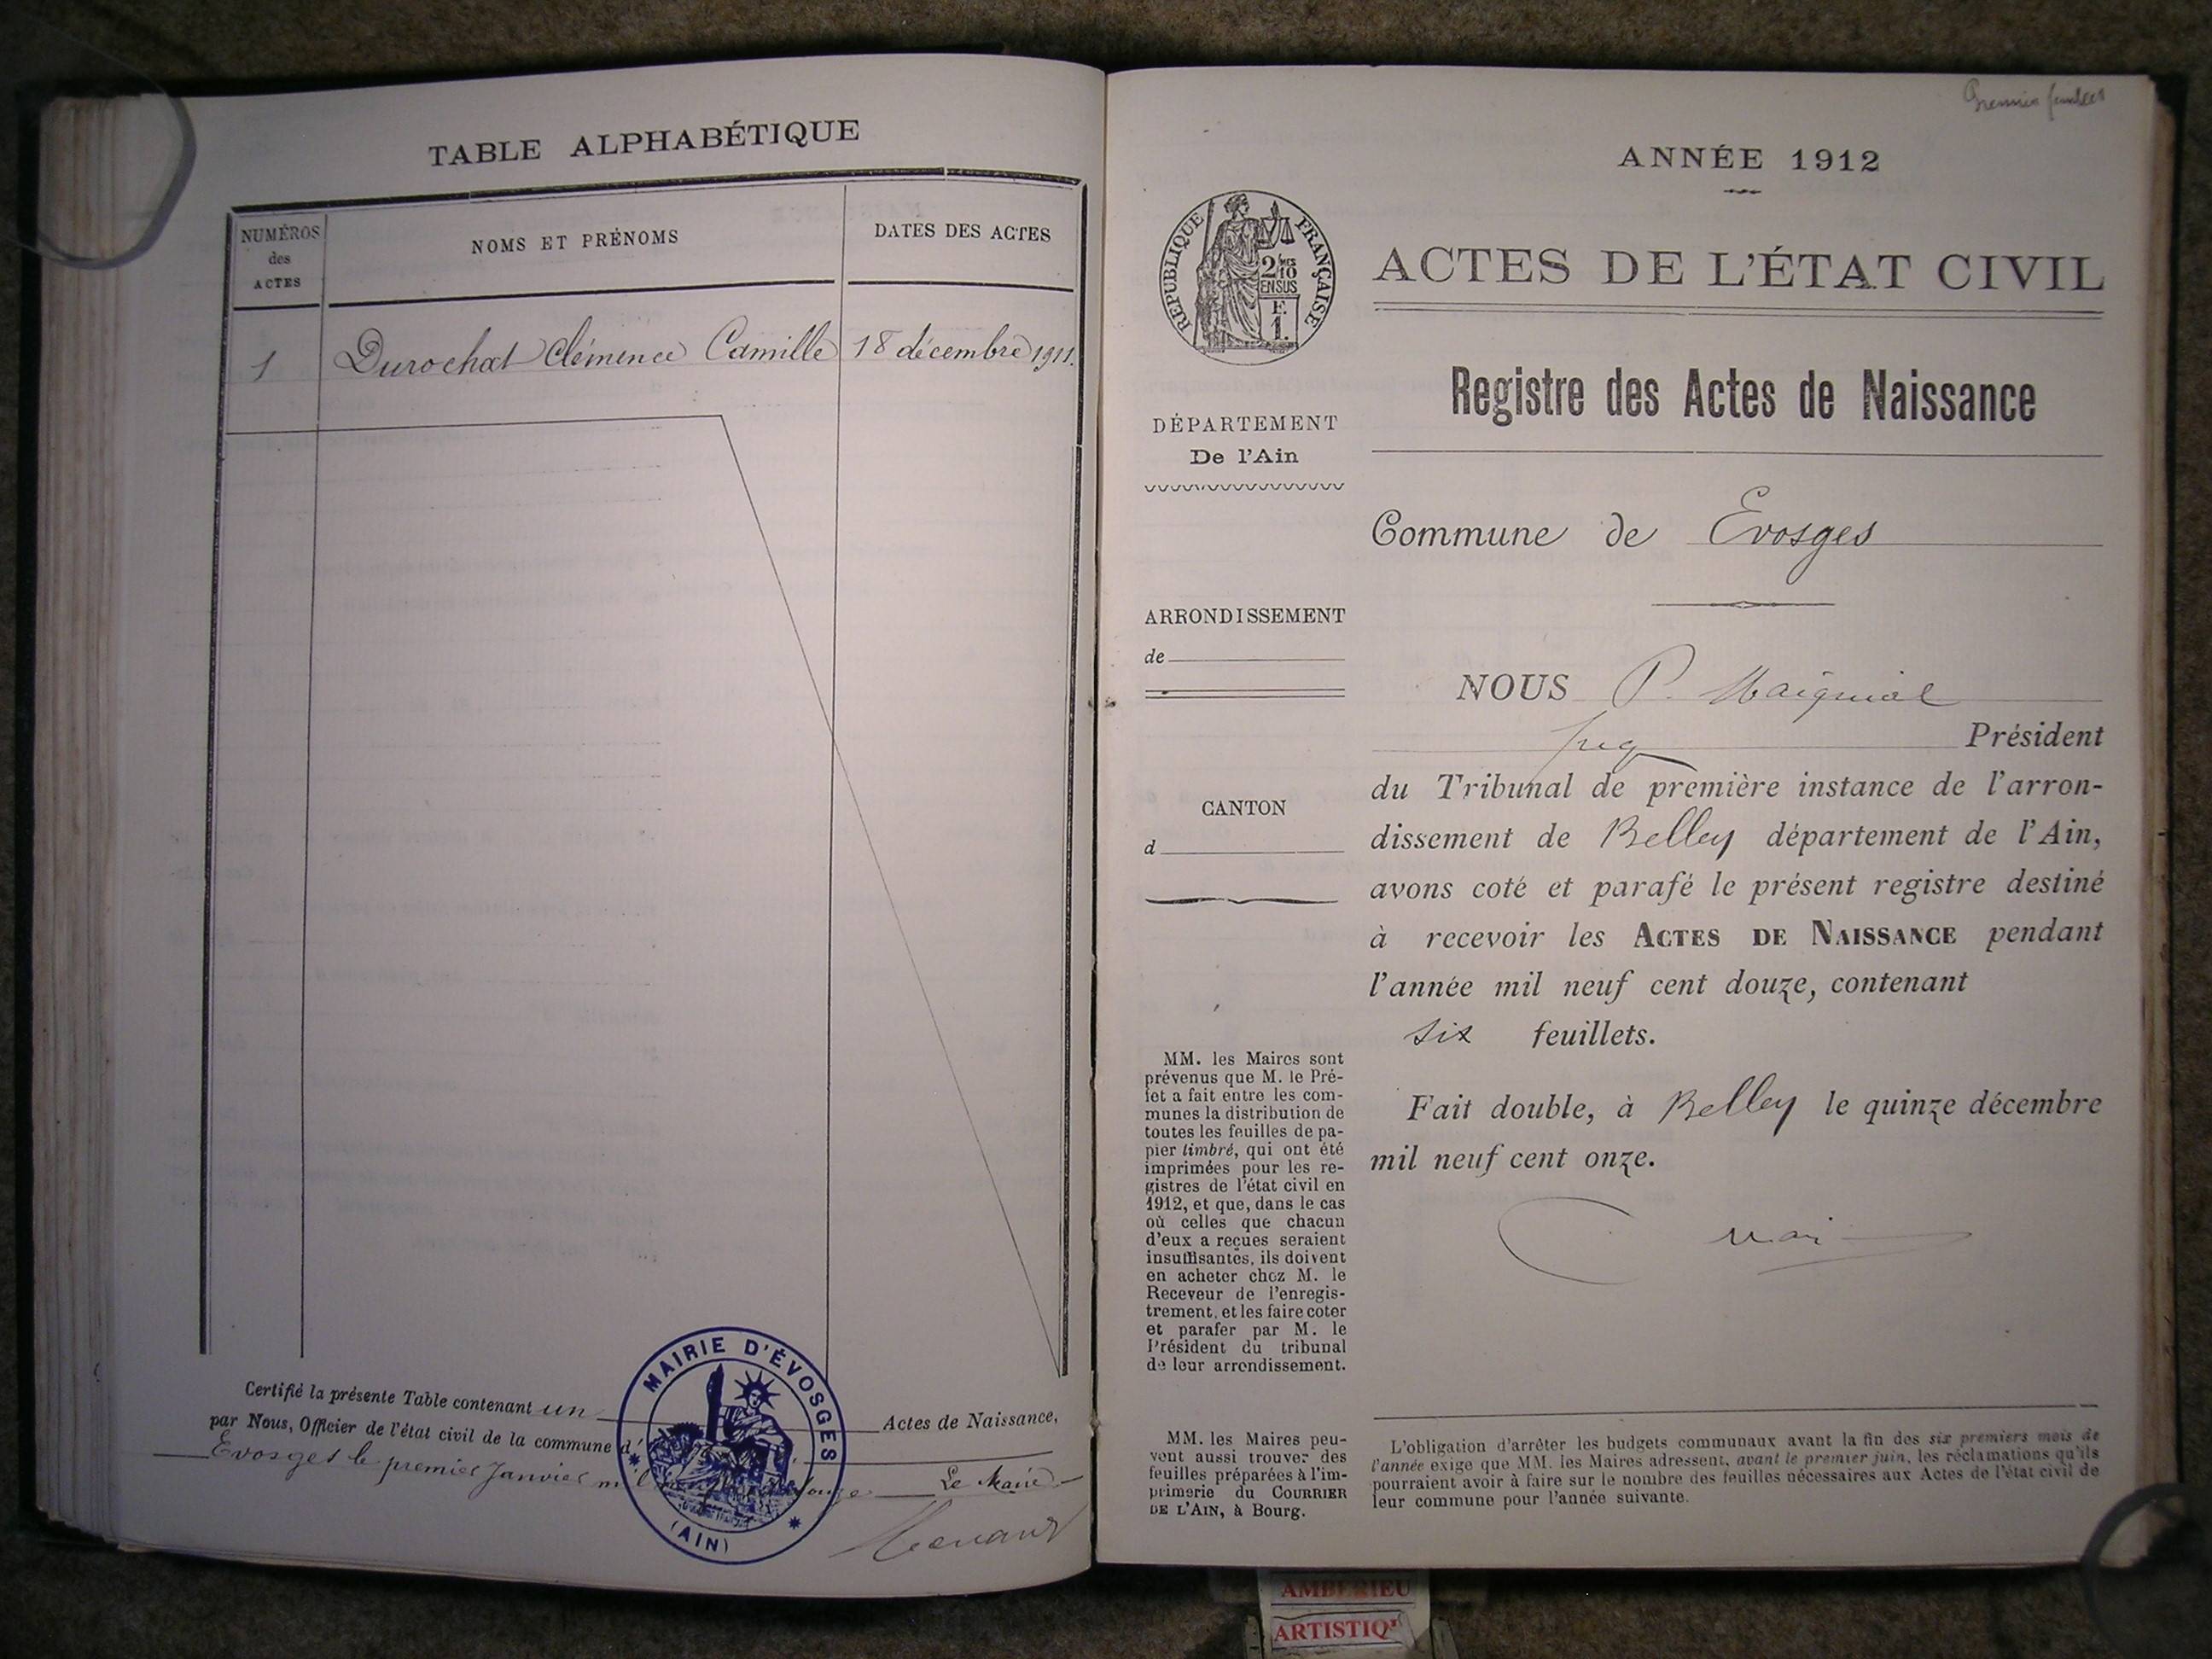 TABLE ALPHABÉTIQUE
NUMÉROS
des
ACTES
NOMS ET PRÉNOMS
DATES DES ACTES
1 Durochat Clémence Camille 18 décembre 1911.
Certifié la présente Table contenant un Actes de Naissance,
par Nous, Officier de l'état civil de la commune d'
Evosges le premier Janvier mil Le Maire
MAIRIE D'ÉVOSGES
(AIN)
Premier feuillet
ANNÉE 1912
RÉPUBLIQUE FRANÇAISE
2/10 MES
EN SUS
F.
1.
ACTES DE L'ÉTAT CIVIL
Registre des Actes de Naissance
DÉPARTEMENT
De l'Ain
Commune de Evosges
ARRONDISSEMENT
de
CANTON
d
NOUS P.
Président
du Tribunal de première instance de l'arron-
dissement de Belley département de l'Ain,
avons coté et parafé le présent registre destiné
à recevoir les ACTES DE NAISSANCE pendant
l'année mil neuf cent douze, contenant
six feuillets.
Fait double, à Belley le quinze décembre
mil neuf cent onze.
MM. les Maires sont
prévenus que M. le Pré-
fet a fait entre les com-
munes la distribution de
toutes les feuilles de pa-
pier timbré, qui ont été
imprimées pour les re-
gistres de l'état civil en
1912, et que, dans le cas
où celles que chacun
d'eux a reçues seraient
insuffisantes, ils doivent
en acheter chez M. le
Receveur de l'enregis-
trement, et les faire coter
et parafer par M. le
Président du tribunal
de leur arrondissement.
MM. les Maires peu-
vent aussi trouver des
feuilles préparées à l'im-
primerie du COURRIER
DE L'AIN, à Bourg.
L'obligation d'arrêter les budgets communaux avant la fin des six premiers mois de
l'année exige que MM. les Maires adressent, avant le premier juin, les réclamations qu'ils
pourraient avoir à faire sur le nombre des feuilles nécessaires aux Actes de l'état civil de
leur commune pour l'année suivante.
AMBERIEU
ARTISTIQ